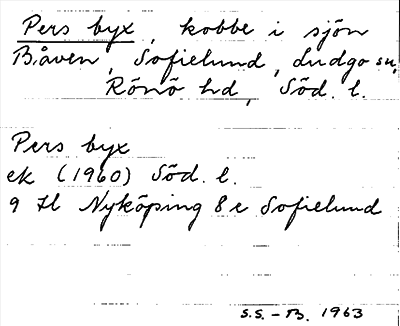 Pers byx, kobbe i sjön
Båven, Sofielund, Ludgo sn,
Rönö hd, Söd. l.
Pers byx
ek (1960) Söd. l.
9 H Nyköping 8 e Sofielund
S.S. - B. 1963